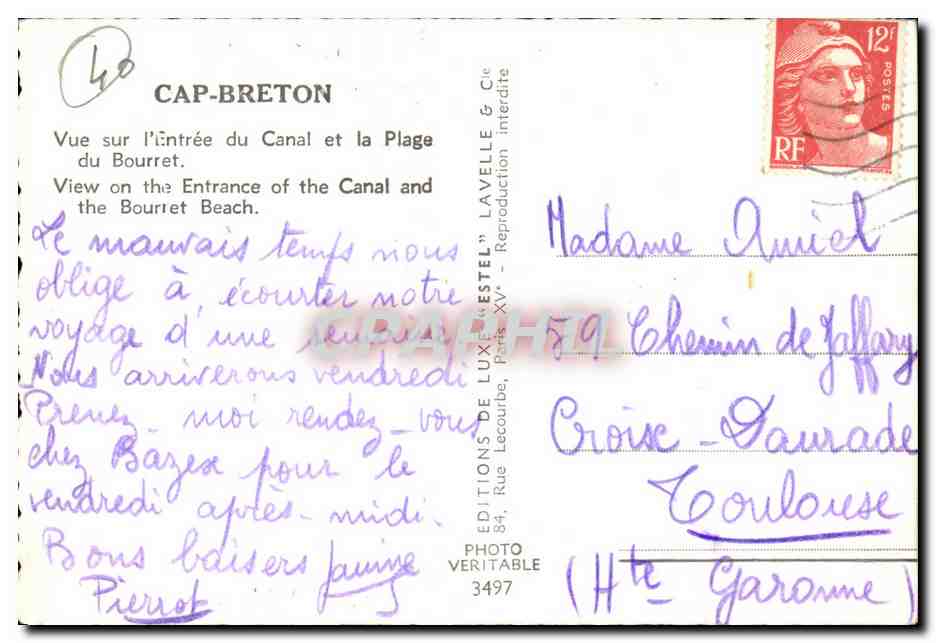 40
CAP-BRETON
Vue sur l'Entrée du Canal et la Plage
du Bourret.
View on the Entrance of the Canal and
the Bourret Beach.
Le mauvais temps nous
oblige à écourter notre
voyage d'une semaine
Nous arriverons vendredi
Prenez-moi rendez-vous
chez Bazex pour le
vendredi après-midi.
Bons baisers
Pierrot
EDITIONS DE LUXE "ESTEL" LAVELLE & Cie
84, Rue Lecourbe, Paris XVe - Reproduction interdite
PHOTO
VERITABLE
3497
12F
POSTES
RF
Madame Amiel
59 Chemin de Jaffary
Croix-Daurade
Toulouse
(Hte Garonne)
CPAPHIL